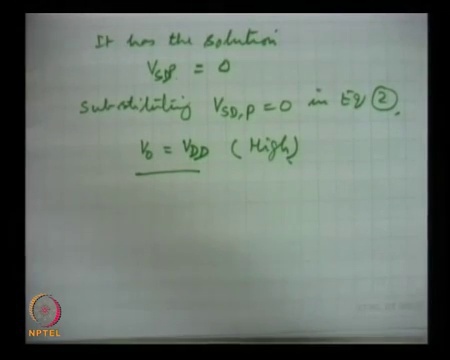 It has the solution
V_SDP = 0
Substituting V_SD,P = 0 in Eq ②,
V_0 = V_DD (High)
NPTEL